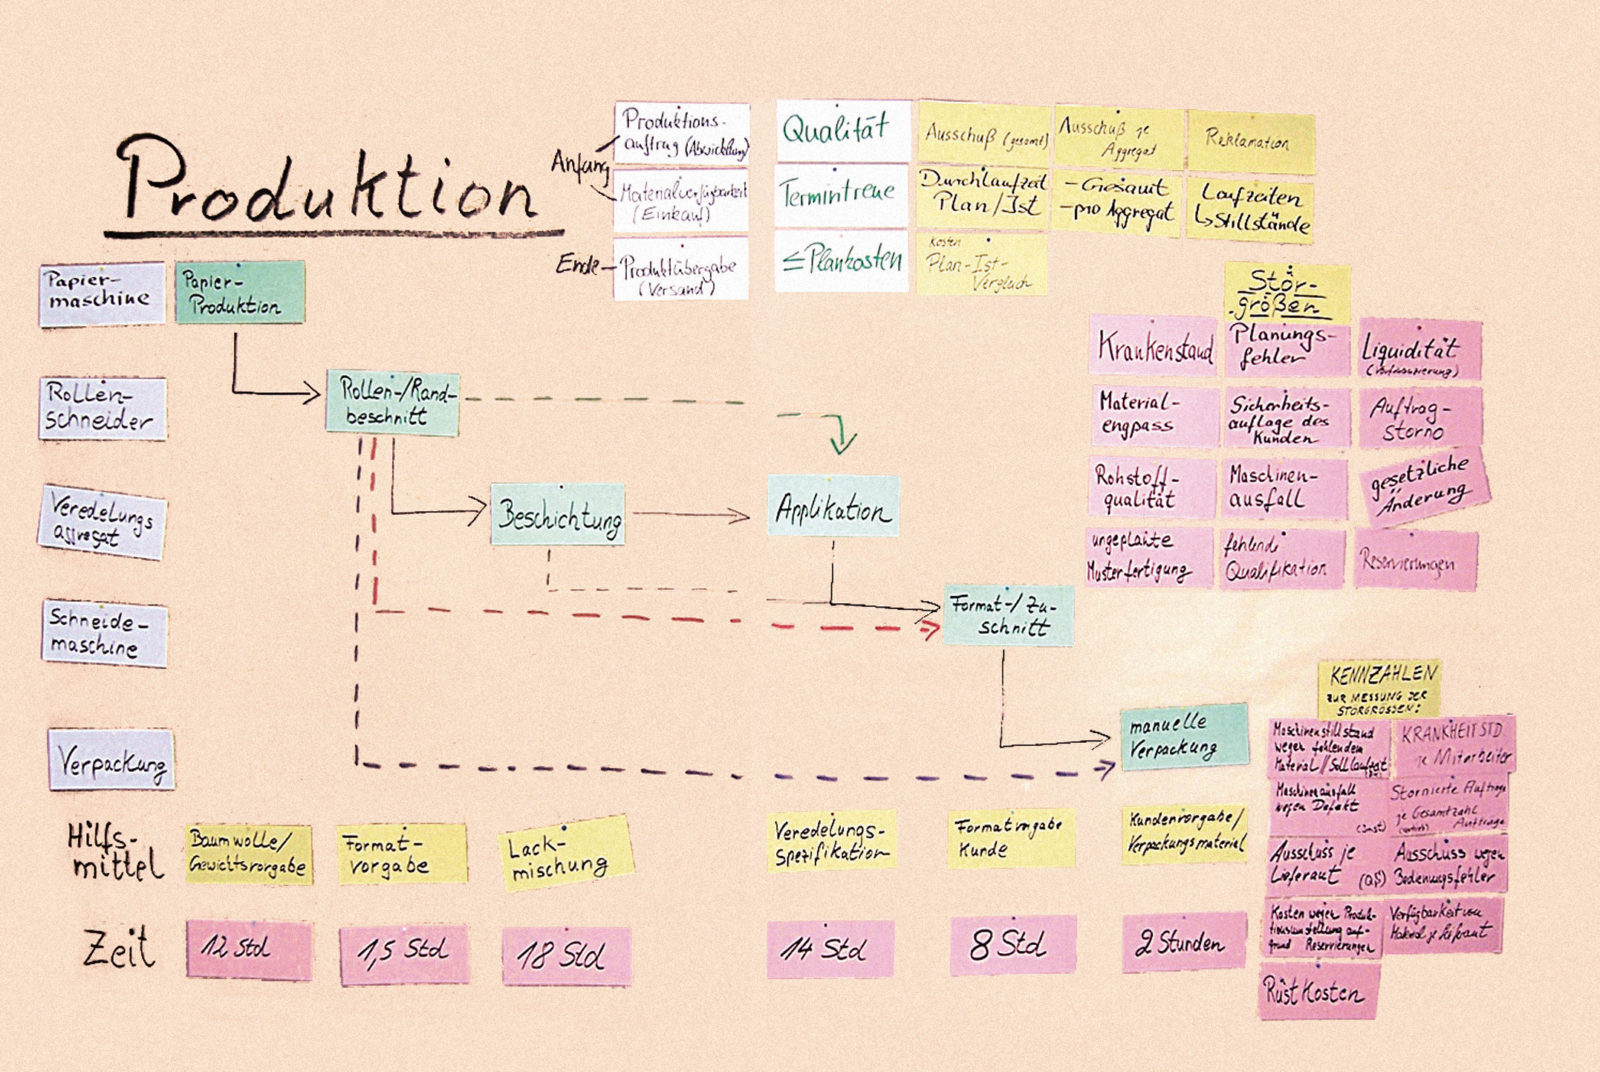 Produktion
Anfang
Produktions-
auftrag (Abwicklung)
Materialverfügbarkeit
(Einkauf)
Ende
Produktübergabe
(Versand)
Qualität
Termintreue
≤Plankosten
Ausschuß (gesamt)
Ausschuß je
Aggregat
Reklamation
Durchlaufzeit
Plan/Ist
-Gesamt
-pro Aggregat
Laufzeiten
↳Stillstände
Kosten
Plan-Ist-
Vergleich
Papier-
maschine
Papier-
Produktion
Rollen-
schneider
Rollen-/Rand-
beschnitt
Veredelungs
aggregat
Beschichtung
Applikation
Schneide-
maschine
Format-/Zu-
schnitt
Verpackung
manuelle
Verpackung
Stör-
größen
Krankenstand
Planungs-
fehler
Liquidität
(Vorfinanzierung)
Material-
engpass
Sicherheits-
auflage des
Kunden
Auftrag-
Storno
Rohstoff-
qualität
Maschinen-
ausfall
gesetzliche
Änderung
ungeplante
Musterfertigung
fehlende
Qualifikation
Reservierungen
KENNZAHLEN
ZUR MESSUNG DER
STÖRGRÖSSEN:
Maschinenstillstand
wegen fehlendem
Material/Solllaufzeit
KRANKHEITSTD
je Mitarbeiter
Maschinenausfall
wegen Defekt
Stornierte Aufträge
je Gesamtzahl
Aufträge
Ausschuss je
Lieferant (QS)
Ausschuss wegen
Bedienungsfehler
Kosten wegen Produk-
tionsumstellung auf-
grund Reservierungen
Verfügbarkeit von
Material je Lieferant
Rüstkosten
Hilfs-
mittel
Baumwolle/
Gewichtsvorgabe
Format-
vorgabe
Lack-
mischung
Veredelungs-
Spezifikation
Formatvorgabe
Kunde
Kundenvorgabe/
Verpackungsmaterial
Zeit
12 Std
1,5 Std
18 Std
14 Std
8 Std
2 Stunden